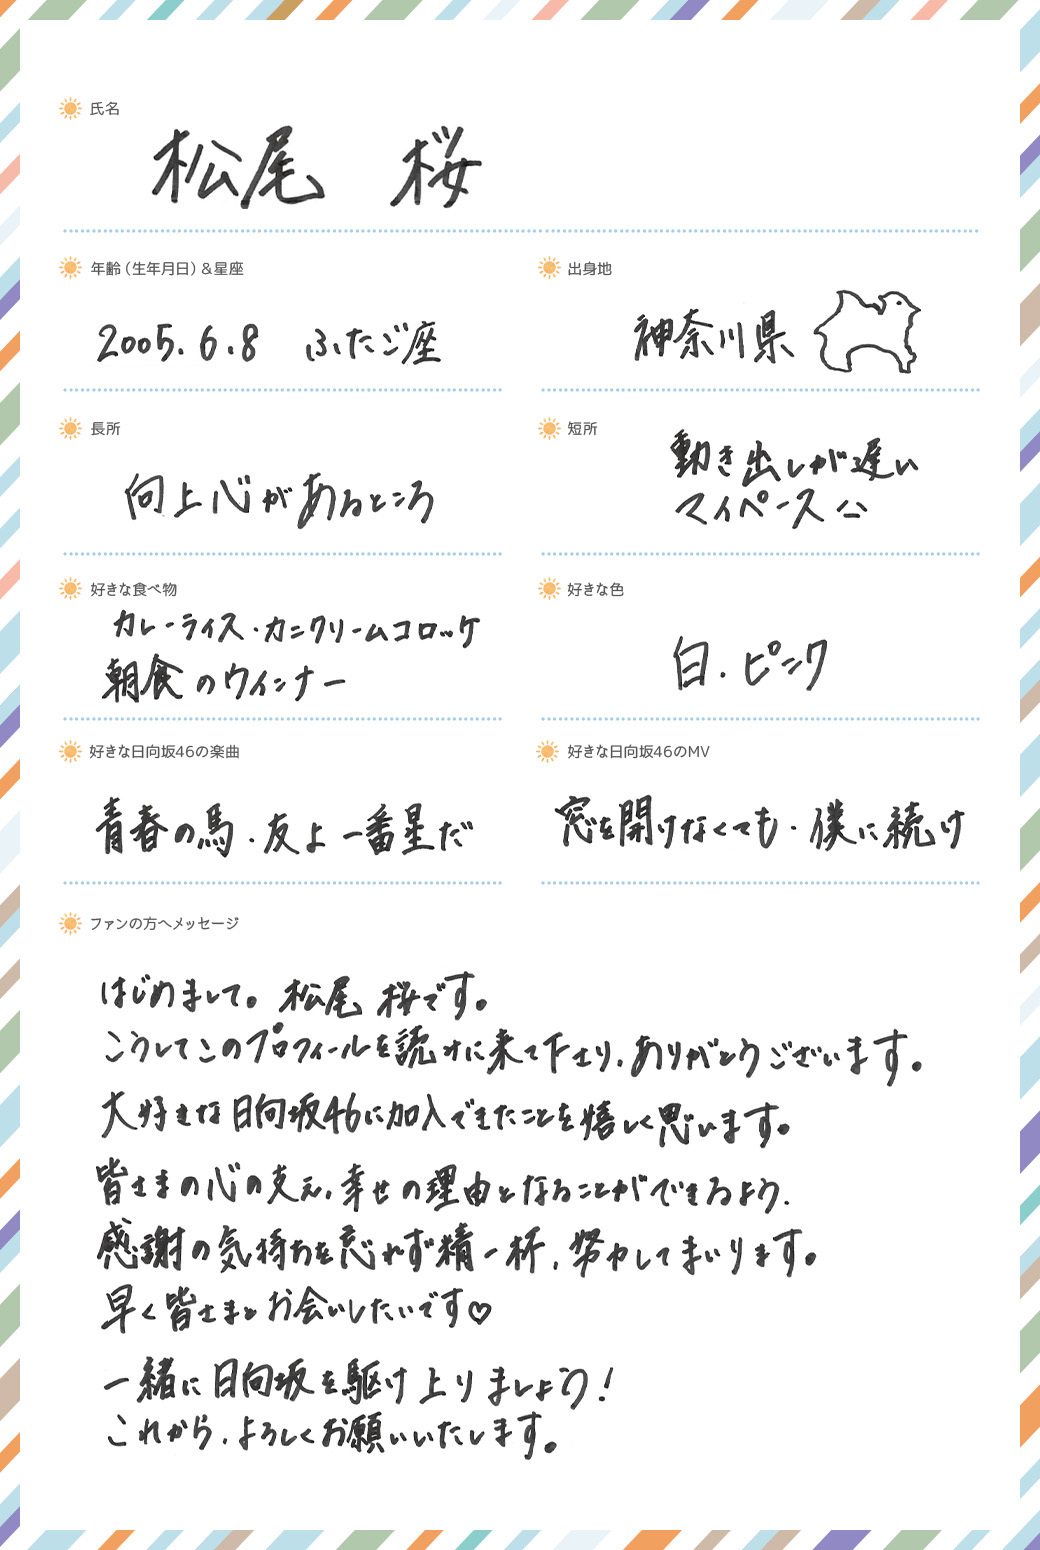 氏名
松尾 桜
年齢(生年月日)&星座
2005.6.8 ふたご座
出身地
神奈川県
長所
向上心があるところ
短所
動き出しが遅い
マイペース
好きな食べ物
カレーライス・カニクリームコロッケ
朝食のウインナー
好きな色
白・ピンク
好きな日向坂46の楽曲
青春の馬・友よ 一番星だ
好きな日向坂46のMV
窓を開けなくても・僕に続け
ファンの方へメッセージ
はじめまして。松尾 桜です。
こうしてこのプロフィールを読みに来て下さり、ありがとうございます。
大好きな日向坂46に加入できたことを嬉しく思います。
皆さまの心の支え、幸せの理由となることができるよう、
感謝の気持ちを忘れず精一杯、努力してまいります。
早く皆さまとお会いしたいです♡
一緒に日向坂を駆け上りましょう!
これから、よろしくお願いいたします。